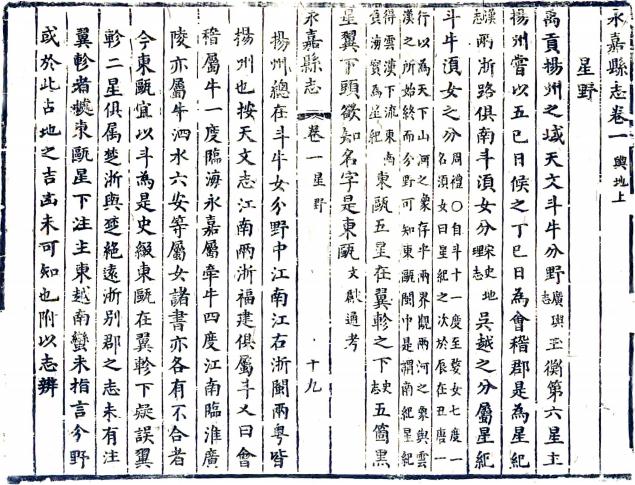 永嘉縣志卷一 輿地上
星野
禹貢揚州之域天文斗牛分野廣輿志玉衡第六星主
揚州嘗以五巳日候之丁巳日為會稽郡是為星紀
漢志兩浙路俱南斗湏女分宋史地理志吳越之分屬星紀
斗牛湏女之分周禮〇自斗十一度至婺女七度一名湏女曰星紀之次於辰在丑唐一
行以為天下山河之象存乎兩界觀兩河之象與雲漢之所始終而分野可知東甌閩中是謂南紀星紀
得雲漢下流東南負海賔為星紀東甌五星在翼軫之下史志五箇黒
星翼下頭欲知名字是東甌文獻通考
永嘉縣志 卷一 星野 十九
揚州總在斗牛女分野中江南江右浙閩兩粤皆
揚州也按天文志江南兩浙福建俱屬斗又曰會
稽屬牛一度臨海永嘉屬牽牛四度江南臨淮廣
陵亦屬牛泗水六安等屬女諸書亦各有不合者
今東甌宜以斗為是史綴東甌在翼軫下疑誤翼
軫二星俱属楚浙與楚絶遠浙别郡之志未有注
翼軫者㨿東甌星下注主東越南蠻未指言今野
或於此占地之吉凶未可知也附以志辨